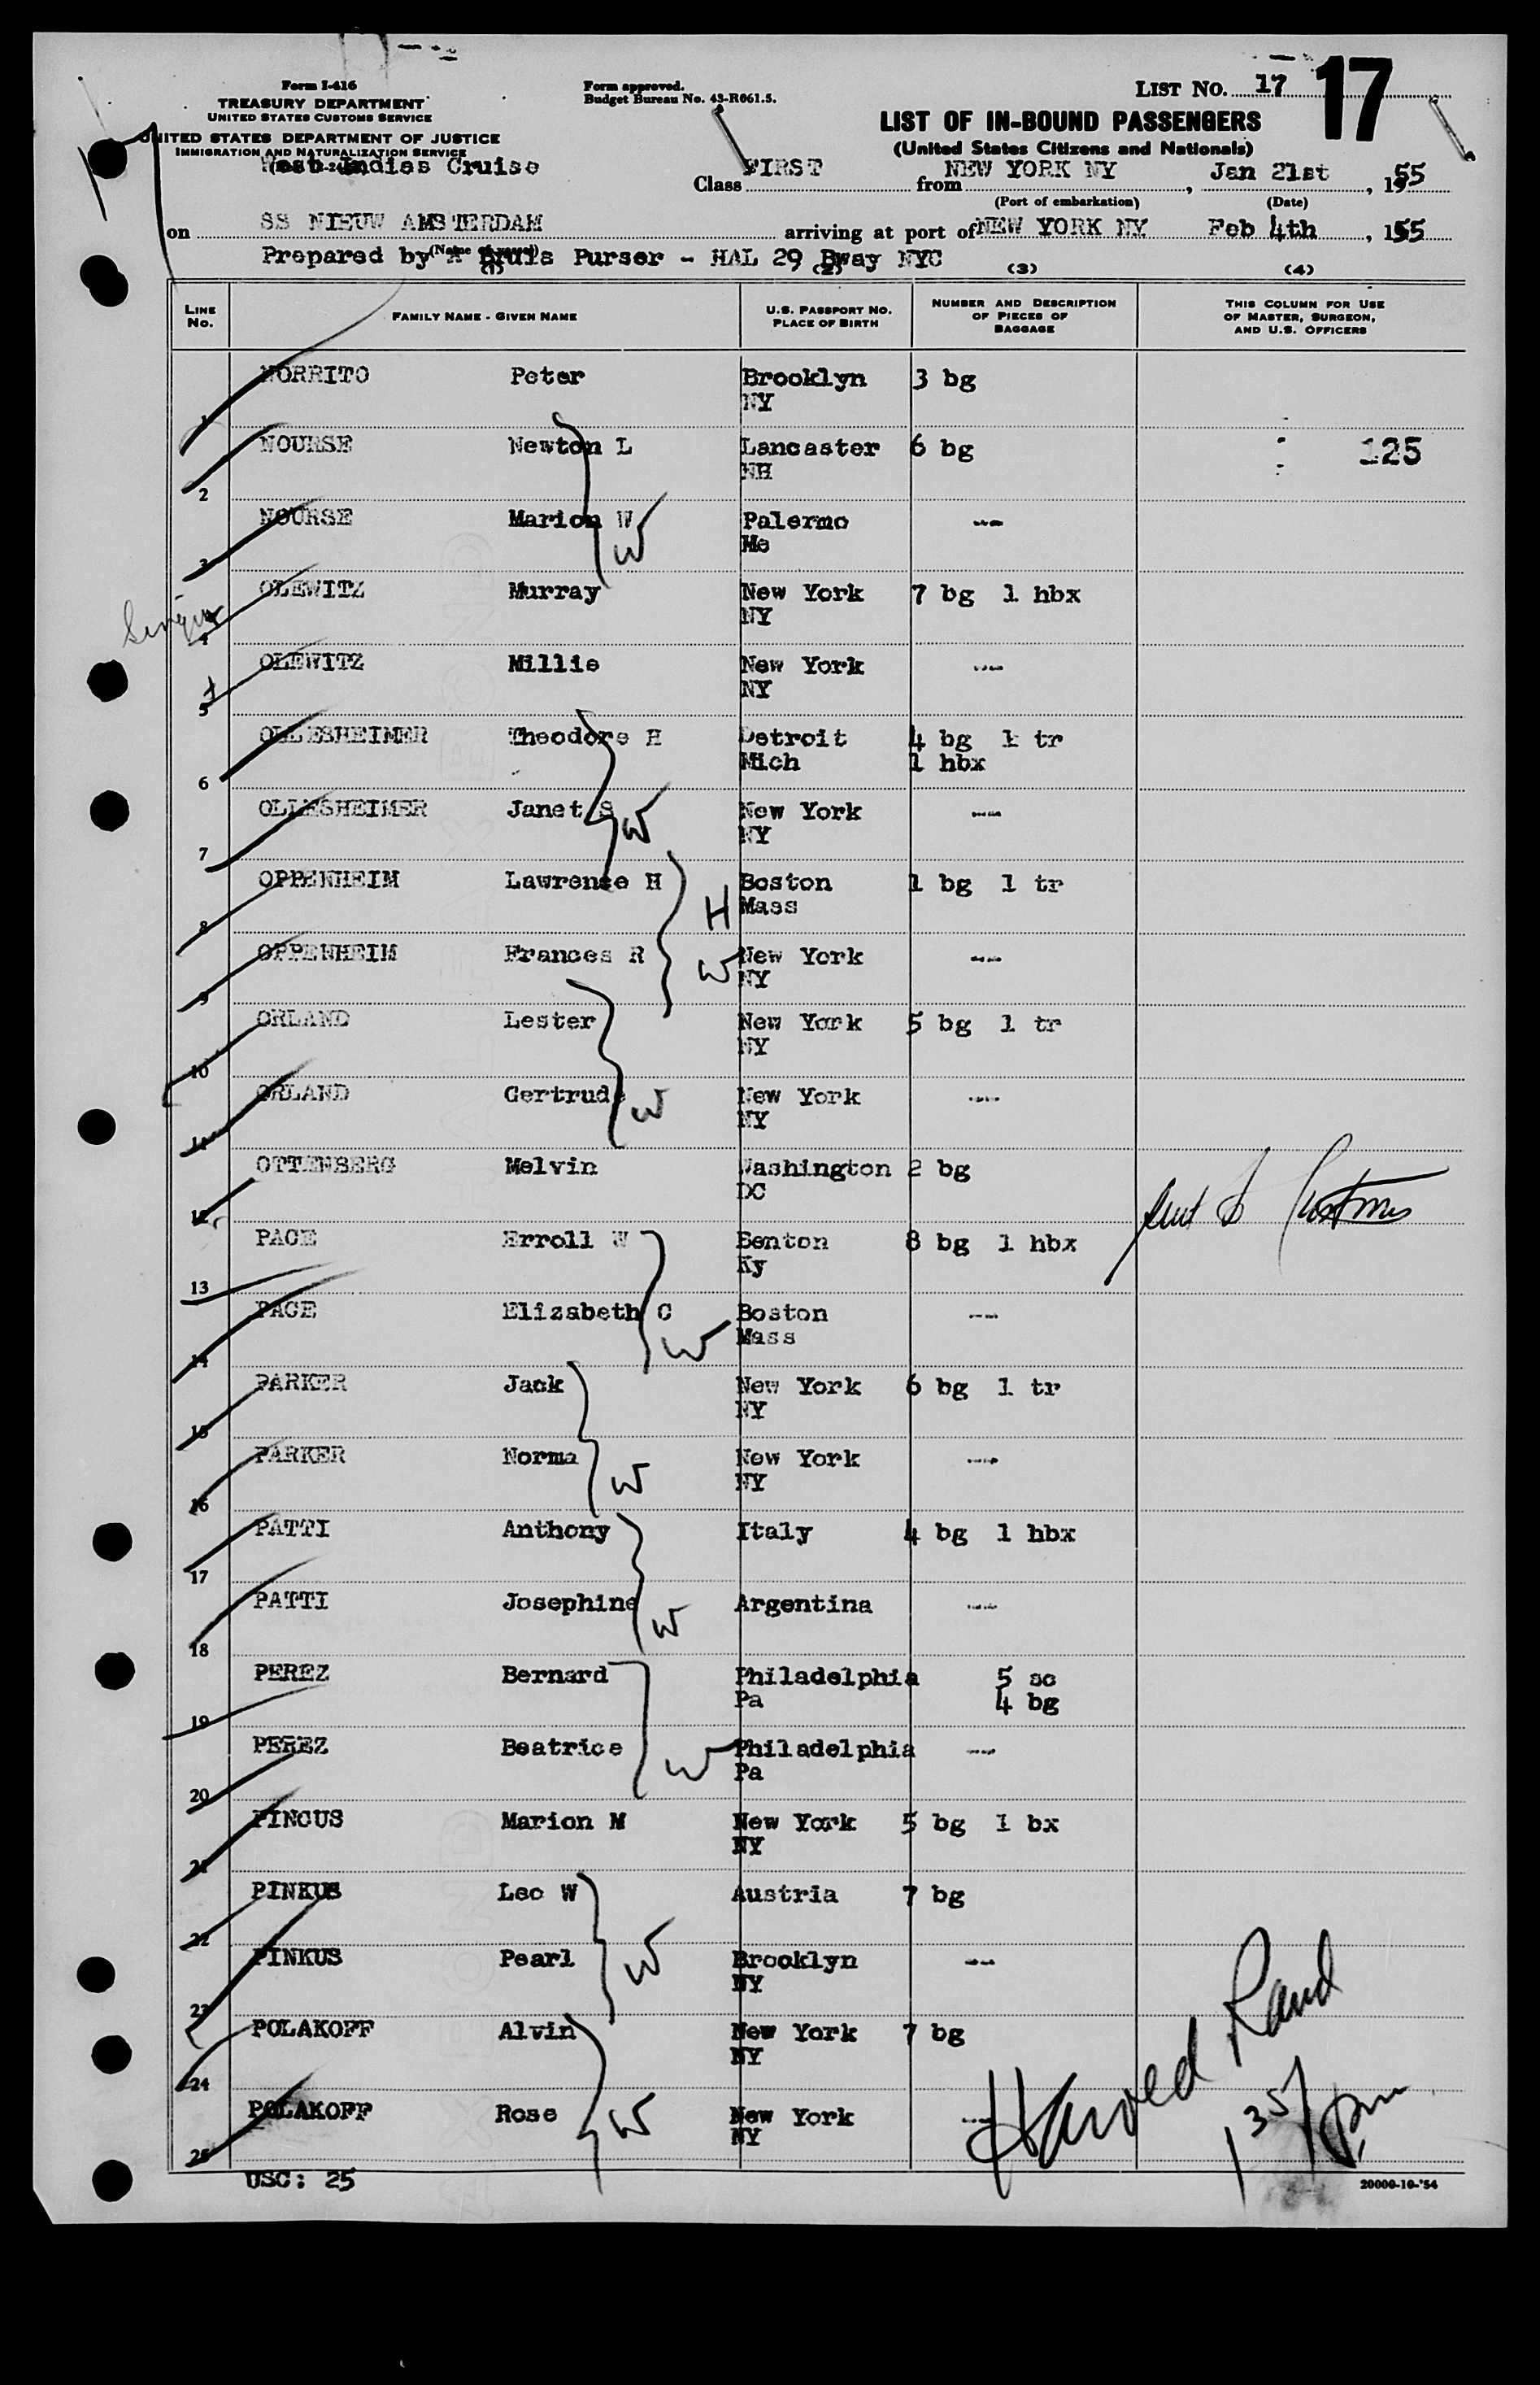 Form I-416
TREASURY DEPARTMENT
UNITED STATES CUSTOMS SERVICE
UNITED STATES DEPARTMENT OF JUSTICE
IMMIGRATION AND NATURALIZATION SERVICE
Form approved.
Budget Bureau No. 43-R061.5.
LIST NO. 17 17
LIST OF IN-BOUND PASSENGERS
(United States Citizens and Nationals)
West Indies Cruise
Class FIRST from NEW YORK NY, Jan 21st, 1955
(Port of embarkation) (Date)
on SS NIEUW AMSTERDAM arriving at port of NEW YORK NY Feb 4th, 1955
(Name of vessel)
Prepared by A Purser - HAL 29 Bway NYC
(1) (2) (3) (4)
LINE No. FAMILY NAME - GIVEN NAME U.S. PASSPORT NO. PLACE OF BIRTH NUMBER AND DESCRIPTION OF PIECES OF BAGGAGE THIS COLUMN FOR USE OF MASTER, SURGEON, AND U.S. OFFICERS
1 NORRITO Peter Brooklyn NY 3 bg
2 NOURSE Newton L Lancaster NH 6 bg 125
3 NOURSE Marion W Palermo Me --- W
4 OLEWITZ Murray New York NY 7 bg 1 hbx
5 OLEWITZ Millie New York NY ---
6 OLLESHEIMER Theodore H Detroit Mich 4 bg 1 tr 1 hbx
7 OLLESHEIMER Janet S New York NY --- W
8 OPPENHEIM Lawrence H H Boston Mass 1 bg 1 tr
9 OPPENHEIM Frances R W New York NY ---
10 ORLAND Lester New York NY 5 bg 1 tr
11 ORLAND Gertrude W New York NY ---
12 OTTENBERG Melvin Washington DC 2 bg
13 PACE Erroll W Benton Ky 8 bg 1 hbx
14 PACE Elizabeth C W Boston Mass ---
15 PARKER Jack New York NY 6 bg 1 tr
16 PARKER Norma W New York NY ---
17 PATTI Anthony Italy 4 bg 1 hbx
18 PATTI Josephine W Argentina ---
19 PEREZ Bernard Philadelphia Pa 5 sc 4 bg
20 PEREZ Beatrice W Philadelphia Pa ---
21 PINCUS Marion M New York NY 5 bg 1 bx
22 PINKUS Leo W Austria 7 bg
23 PINKUS Pearl W Brooklyn NY ---
24 POLAKOFF Alvin New York NY 7 bg
25 POLAKOFF Rose W New York NY ---
Harold Rand
1 35/pm
USC: 25
20000-10-'54